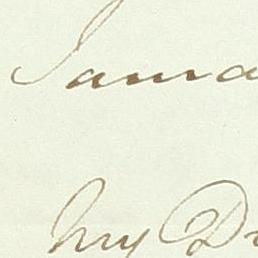 Jama
My D